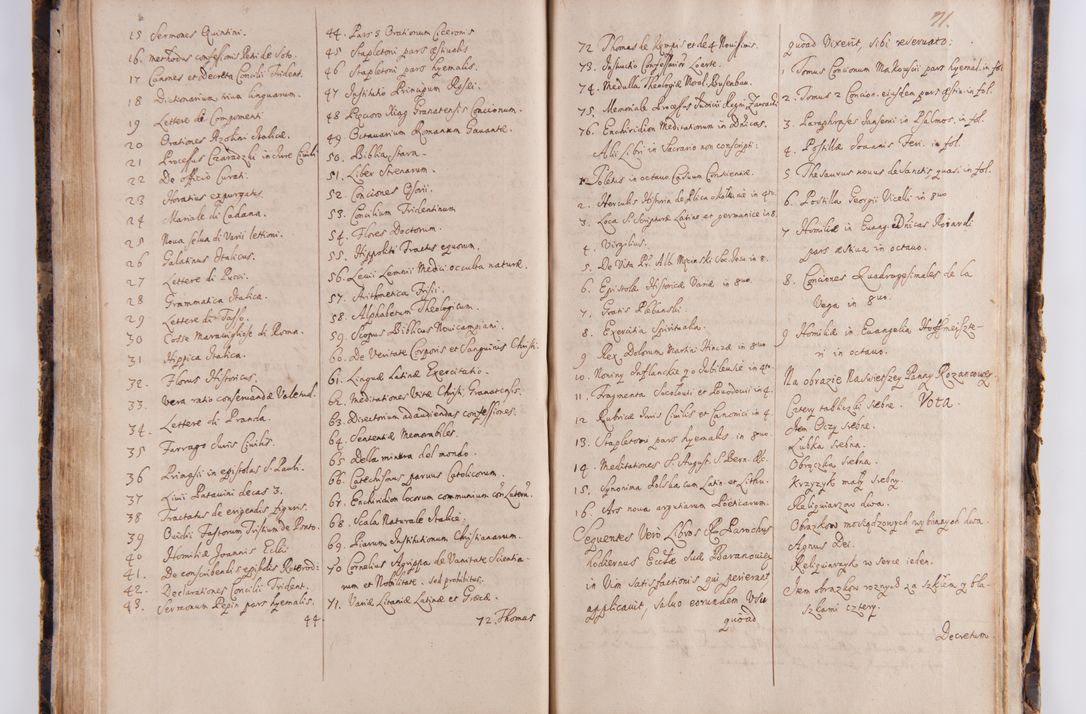 15 Sermones Quintini.
16. methodus confessionis Petri de Soto.
17 Canones et Decreta Concilii Trident.
18 Dictionarium linguarum.
19 Lettere di Componenti
20 Orationes Italicæ.
21 Processus Czaradzki in Jure Civili
22 De officio Curati.
23 Horatius expurgatus
24 Mariale di Cadana.
25 Nova selva di Varii lettioni.
26 Galatinus Italicus.
27 Lettere di Pucci.
28 Grammatica Italica.
29 Lettere di Tasso.
30 Cosse Maravigliose di Roma.
31 Hippica Italica.
32. Florus Historicus.
33. vera ratio conservandæ Valetud.
34. Lettere di
35 Farrago Juris Civilis.
36 in epistolas S. Pauli.
37 Livii Patavini decas 3.
38 Tractatus de erigendis figuris.
39 Ovidii Fastorum Tristium de Ponto.
40 Homiliæ Joannis Eckii
41. De conscribendis epistolis Roterod:
42. Declarationes Concilii Trident.
43. Sermonum Pepin pars hyemalis.
44.
44. Pars 3 Orationum Ciceronis
45 Stapletoni pars æstivalis
46 Stapletoni pars hyemalis.
47 Institutio Principum
48 Granatensis Concionum.
49 Octavarium Romanum Gavante.
50. Biblia Sacra.
51. Liber Strenarum.
52. Conciones
53. Concilium Tridentinum
54. Flores Doctorum.
55. Hippoliti Tractus equorum.
56. Levii Lemnii Medici occulta naturæ.
57. Arithmetica Frisii.
58. Alphabetum Theologicum.
59. Scopus Biblicus Novicampiani.
60. De Veritate Corporis et Sanguinis Christi.
61. Linguæ Latinæ Exercitatio.
62. Meditationes Vitæ Christi Granatensis.
63. Directorium ad audiendas confessiones.
64. Sententiæ Memorabiles.
65 Della minera del mondo.
66. Catechismus parvus Catolicorum.
67. Enchiridion locorum communium con. Luteru.
68. Scala Naturale Italice.
69. Piarum Institutionum Christianarum.
70 Cornelius Agrippa de Vanitate Scientia-
rum et Nobilitate. Sed prohibitus.
71. Variæ Litaniæ Latinæ et Græcæ.
72. Thomas
71.
72 Thomas de Kempis et de 4 Novissimis.
73. Instructio Confessarior
74. Medulla Theologiæ Moral. Busenbau.
75. Memoriale Processus Judicii Regni
76. Enchiridion Meditationum in Dnicas.
Alii Libri in Sacrario non conscripti:
1. Toletus in octavo Casuum Conscientiæ.
2. Hercules Historia de Plica in 4to.
3. Loca S. Scripturæ Latine et germanice in 8.
4. Virgilius.
5. De Vita Pr. Alb. Męcinski Soc. Jesu in 8.
6. Epistolæ Historicæ Variæ in 8vo.
7. Gratis Plebanski.
8. Exercitia Spiritualia.
9 Rex Dolorum Martini Hincza in 8vo.
10. Noviny Inflanckie o Jubileuszie in 4to.
11. Fragmenta Socolovii et in 4.
12 Rubricæ Juris Civilis et Canonici in 4.
13. Stapletoni pars hyemalis in 8vo.
14. Meditationes S. August. S. Bern. &c.
15. Synonima Polska cum Latin. et Lithu.
16. Ars nova argutiarum Poeticarum.
Seqventes Vero Libros R. Parochus
hodiernus Ecclæ Suæ Baranoviens
in Vim Satisfactionis qui perierant
applicavit, salvo eorundem Usu
quoad
quoad Vixerit, sibi reservato:
1 Tomus Concionum Makowscii pars hyemal. in fol
2. Tomus 2 Concion. ejusdem pars æstiv. in fol.
3. Paraphrases Jansenii in Psalmos. in fol.
4. Postillæ Joannis Feri. in fol.
5 Thesaurus novus de Sanctis quasi in fol.
6. Postilla Georgii Vicelii in 8vo
7 Homiliæ in Evang. Dnicas Roiardi
pars æstiva in octavo.
8. Conciones Quadragesimales de la
Vega in 8vo.
9 Homiliæ in Evangelia Hoffmeiste-
ri in octavo.
Na obrazie Naswietszey Panny Rozancowey
Cztery tabliczki srebne. Vota.
Jtem Oczy srebne.
Łubka srebna.
Obrączka srebna.
Krzyzyk mały srebny.
Reliquiarzow dwa.
Obrazkow mosiądzowych wybijanych dwa.
Agnus Dei.
Reliquiarzyk w serce ieden.
Jtem obrazkow roznych za szkłem y bla-
szkami cztery.
Decretum